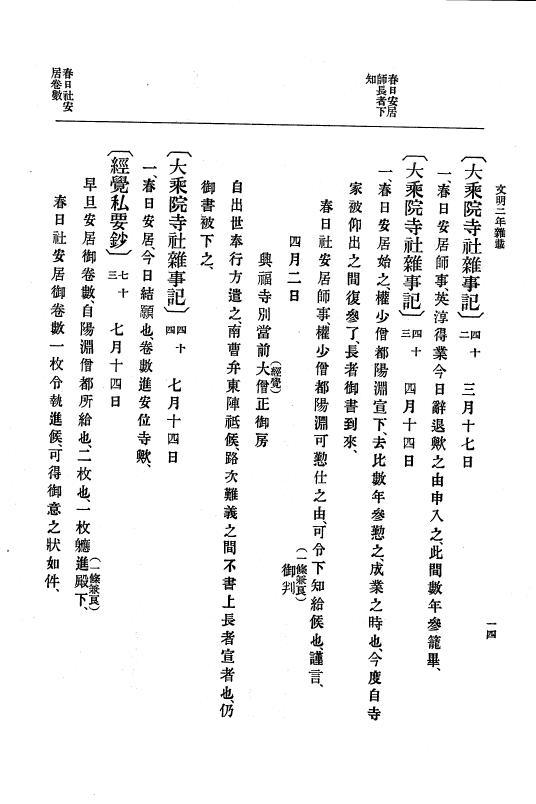 文明二年雜載
一四
春日安居
師長者下
知
春日社安
居卷數
〔大乘院寺社雜事記〕四十二 三月十七日
一、春日安居師事、英淳得業今日辭退歟之由申入之、此間數年參籠畢、
〔大乘院寺社雜事記〕四十三 四月十四日
一、春日安居始之、權少僧都陽淵宣下、去比數年參懃之、成業之時也、今度自寺
家被仰出之間復參了、長者御書到來、
春日社安居師事、權少僧都陽淵可懃仕之由、可令下知給候也、謹言、
四月二日 御判(一條兼良)
興福寺別當前大僧正御房(經覺)
自出世奉行方遣之、南曹弁東陣祗候、路次難義之間不書上長者宣者也、仍
御書被下之、
〔大乘院寺社雜事記〕四十四 七月十四日
一、春日安居、今日結願也、卷數進安位寺歟、
〔經覺私要鈔〕七十三 七月十四日
早旦安居御卷數、自陽淵僧都所給也、二枚也、一枚軈進殿下、(一條兼良)
春日社安居御卷數一枚令執進候、可得御意之狀如件、